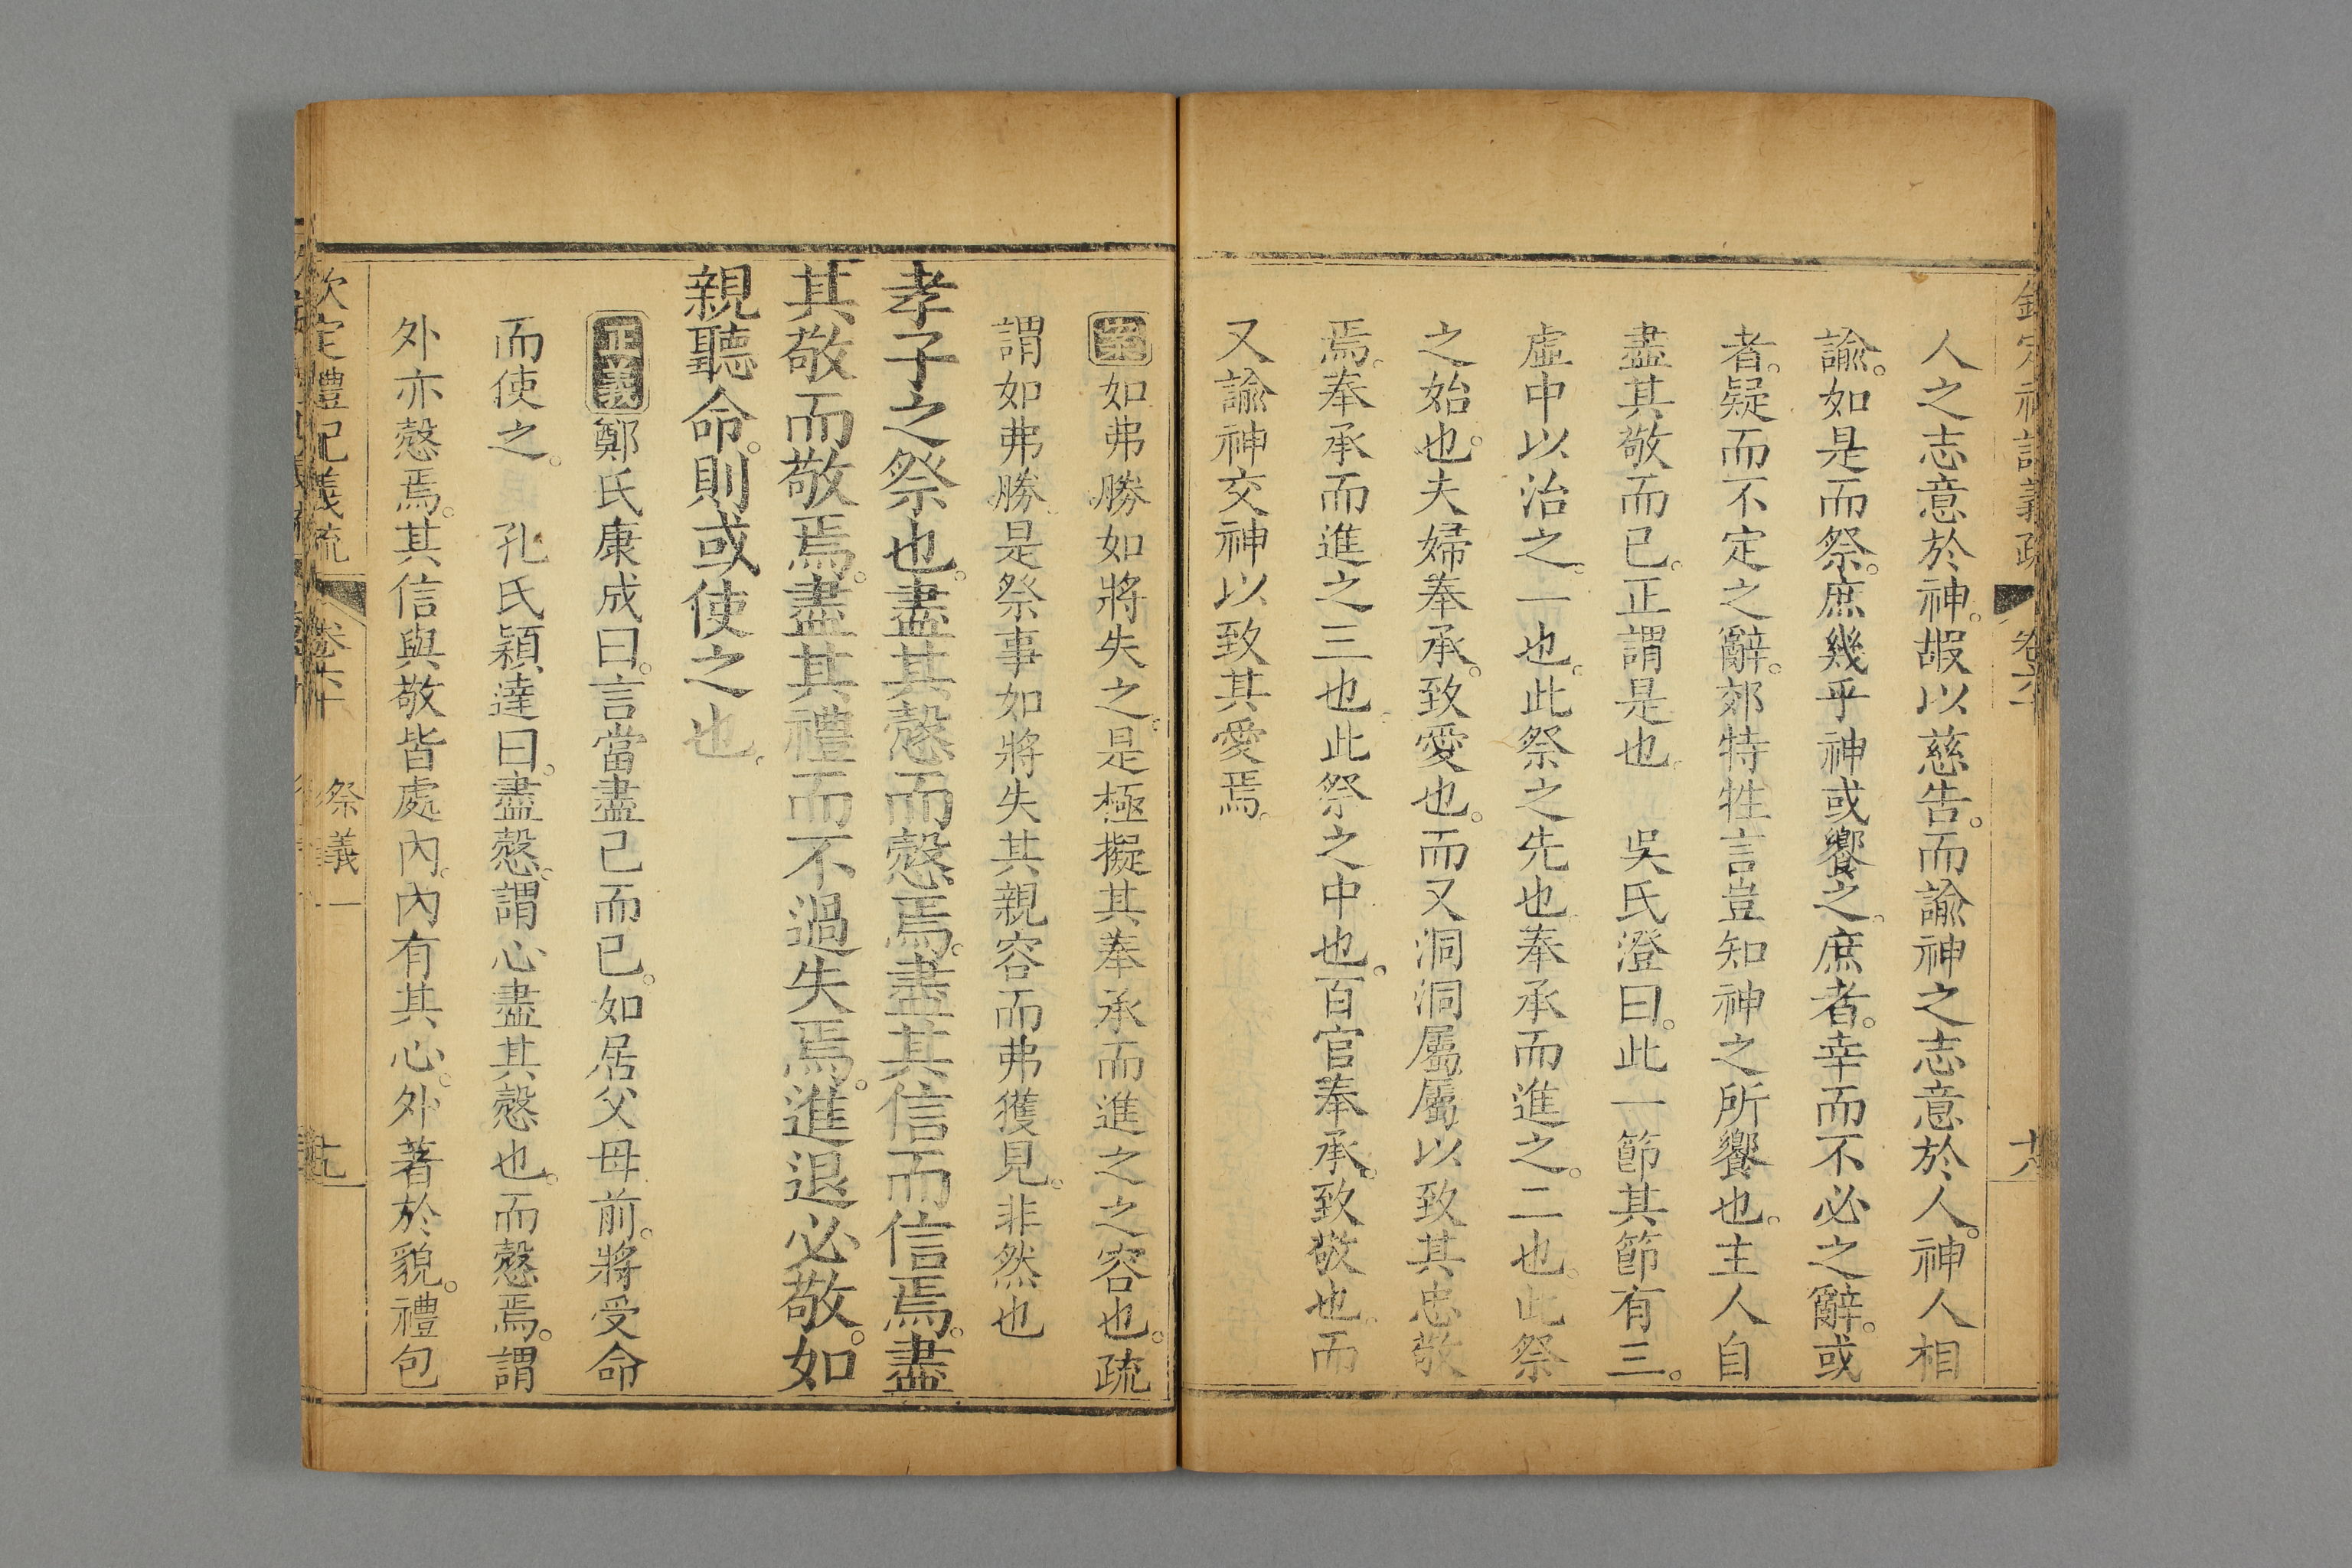 人之志意於神。嘏以慈告。而諭神之志意於人。神人相
諭。如是而祭。庶幾乎神或饗之。庶者。幸而不必之辭。或
者。疑而不定之辭。郊特牲言豈知神之所饗也。主人自
盡其敬而已。正謂是也。 吳氏澄曰。此一節其節有三。
虛中以治之。一也。此祭之先也。奉承而進之。二也。此祭
之始也。夫婦奉承。致愛也。而又洞洞屬屬以致其忠敬
焉。奉承而進之三也。此祭之中也。百官奉承。致敬也。而
又諭神交神以致其愛焉。
案如弗勝如將失之。是極擬其奉承而進之之容也。疏
謂如弗勝。是祭事如將失其親容而弗獲見。非然也
孝子之祭也。盡其慤而慤焉。盡其信而信焉。盡
其敬而敬焉。盡其禮而不過失焉。進退必敬。如
親聽命。則或使之也。
正義鄭氏康成曰。言當盡己而已。如居父母前。將受命
而使之。 孔氏穎達曰。盡慤。謂心盡其慤也。而慤焉。謂
外亦慤焉。其信與敬皆處內。內有其心。外著於貌。禮包
欽定禮記義疏 卷六十 祭義一